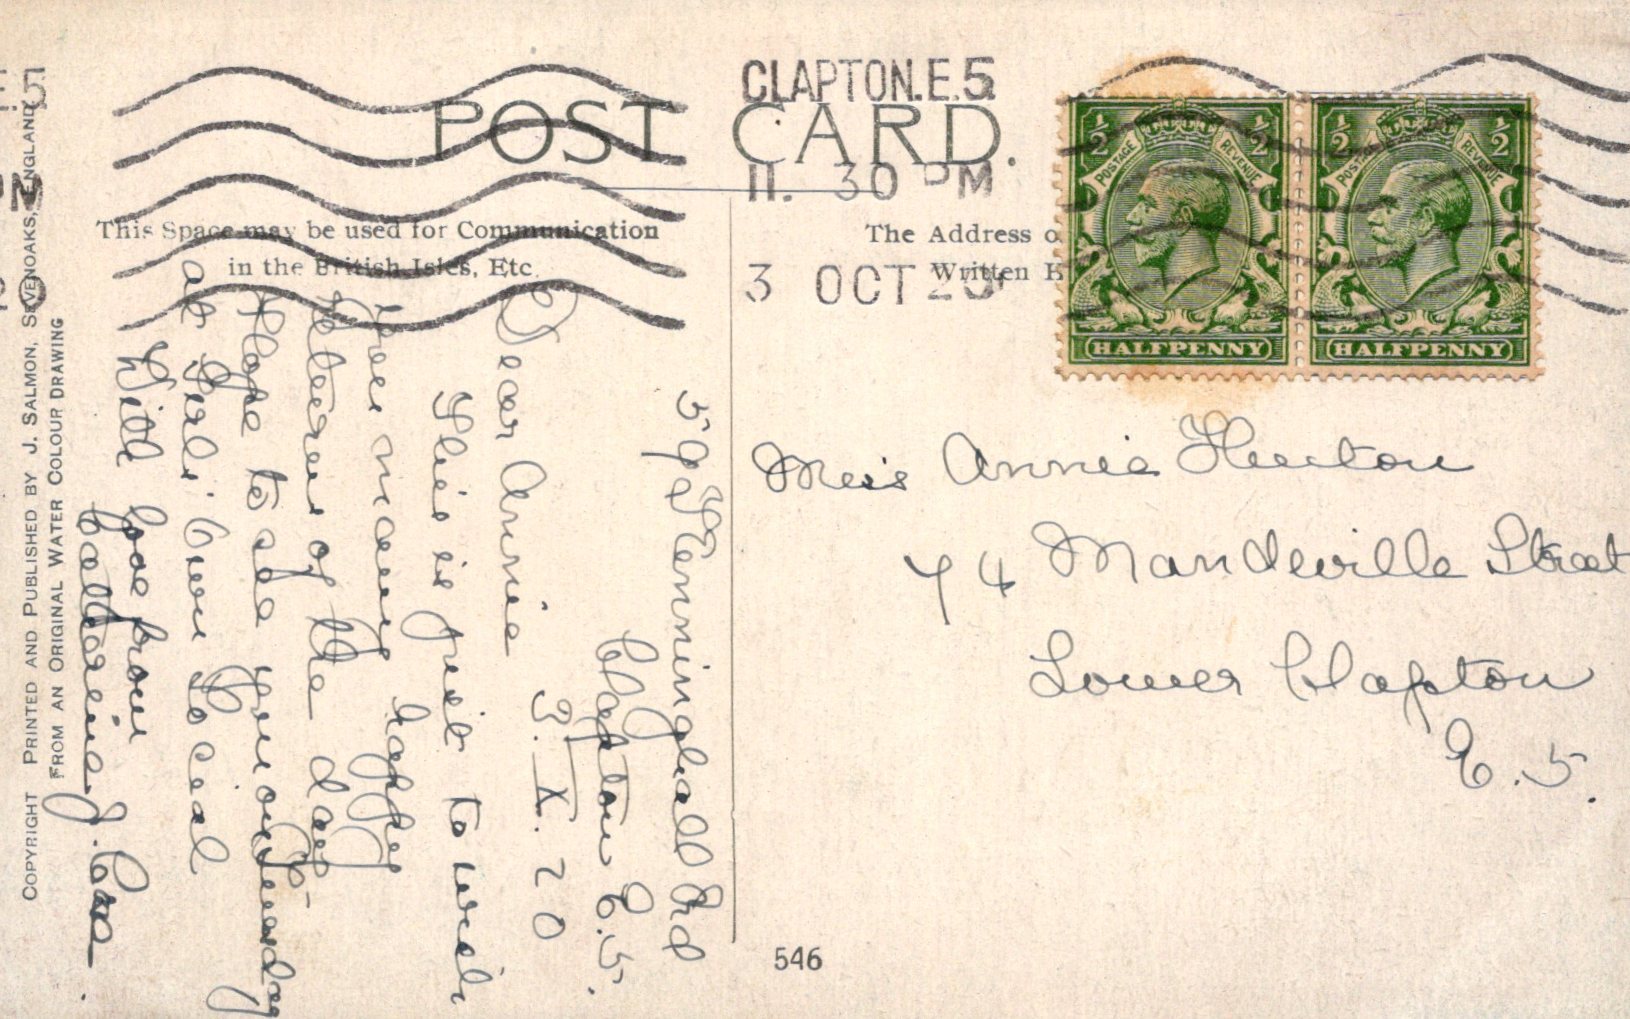 CLAPTON.E.5
11. 30 PM
3 OCT 20
POST CARD.
This Space may be used for Communication
in the British Isles, Etc.
The Address o
Written H
½ ½
POSTAGE REVENUE
HALFPENNY
½ ½
POSTAGE REVENUE
HALFPENNY
59 Kenninghall Rd
Clapton E.5.
3.X.20
Dear Annie
This is just to wish
you many happy
returns of the day.
Hope to see you on Sunday
at Girls' Own Social
With love from
Catherine J.
Miss Annie Hunton
74 Mandeville Street
Lower Clapton
E.5.
546
COPYRIGHT PRINTED AND PUBLISHED BY J. SALMON, SEVENOAKS, ENGLAND
FROM AN ORIGINAL WATER COLOUR DRAWING
E.5
PM
20